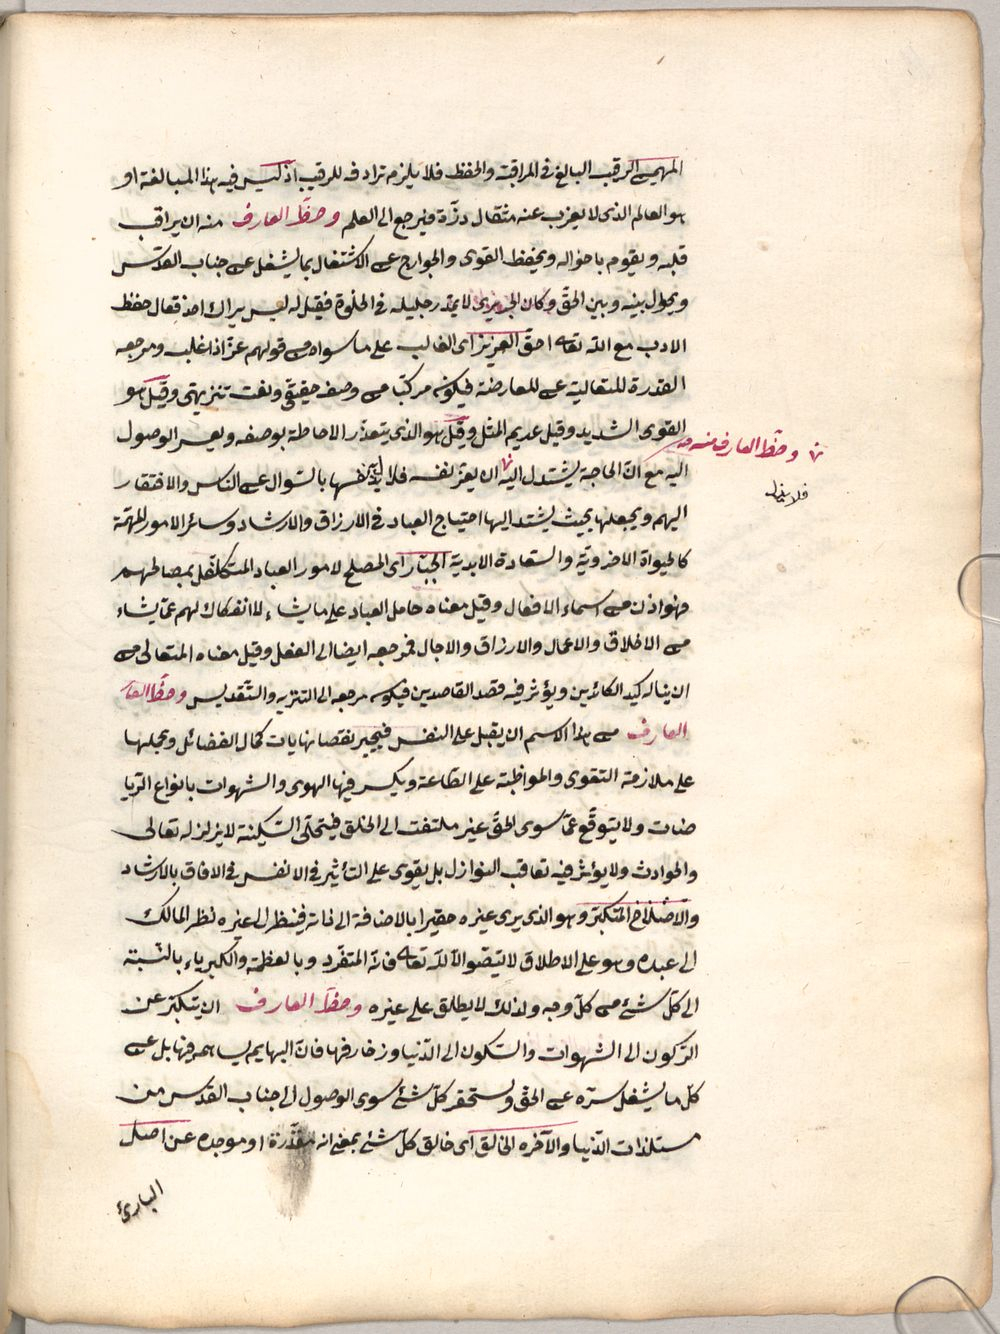 المهيمن الرقيب البالغ في المراقبة والحفظ فلا يلزم ترادفه للرقيب اذ ليس فيه هذا المبالغة او
هو العالم الذى لا يعزب عنه مثقال ذرّة فيرجع الى العلم وحظّ العارف منه ان يراقب
قلبه ويقوم باحواله ويحفظ القوى والجوارح عن الاشتغال بما يشغل عن جناب القدس
ويحول بينه وبين الحقّ وكان الجريرى لا يمدّ رجليه فى الخلوة فقيل له ليس يراك احد فقال حفظ
الادب مع اللّه تعالى احقّ العزيز اى الغالب على ما سواه من قولهم عزّ اذا غلب ومرجعه
القدرة المتعالية عن المعارضة فيكون مركبّا من وصف حقيقىّ ونعت تنزيهىّ وقيل هو
القوى الشديد وقيل عديم المثل وقيل هو الذى يتعذّر الاحاطة بوصفه ويعسر الوصول
اليه مع انّ الحاجة يشتدّ اليه ان يعزّ نفسه فلا نفسها بالسّوال عن الناس والافتقار
اليهم ويجعلها بحيث يشتد اليها احتياج العباد فى الارزاق والارشاد وسائر الامور المهمّة
كالحيوة الاخرويّة والسّعادة الابدية الجبّار اى المصلح لامور العباد المتكلّفل بمصالحهم
فهو اذن من اسماء الافعال وقيل معناه حامل العباد على ما يشاء لا انفكاك لهم عمّا يشاء
من الاخلاق والاعمال والارزاق والاجال فمرجعه ايضا الى الفعل وقيل معناه المتعالى من
ان يناله كيد الكائدين ويؤثر فيه قصد القاصدين فيكون مرجعه الى التنزيه والتّقديس وحظّ العا
العارف من هذا الاسم ان يقبل على النفس فيجبر نقصانها بات كمال الفضائل ويحملها
على ملازمة التقوى والمواظبة على الطّاعة ويكسر فيها الهوى والشهوات بانواع الريا
ضات ولا يتوقّع عمّا سوى الحقّ غير ملتفت الى الخلق فيتحلّى السّكينة لا يزلزله تعالى
والحوادث ولا يؤثر فيه تعاقب النوازل بل يقوى على التأثير فى الانفس فى الافاق بالارشاد
والاصلاح المتكبّر وهو الذى يرى غيره حقيرا بالاضافة الى ذاته فينظر الى غيره نظر المالك
الى عبده وهو على الاطلاق لا يتصّو الّا للّه تعالى فانّه المتفرّد وبالعظمة والكبرياء بالنّسبة
الى كلّ شئ من كلّ وجه ولذلك لا يطلق على غيره وحظّ العارف ان يتكبّر عن
الرّكون الى الشهوات والسّكون الى الدّنيا وزخارفها فانّ البهايم يساهمه فيها بل عن
كلّ ما يشغل سرّه عن الحقّ ويستحقر كلّ شئ سوى الوصول الى جناب القدس من
مستلذات الدّنيا والآخرة الخالق اى خالق كلّ شئ بمعنى انه مقدّرة او موجده عن اصل
البارئ
وحظّ العارف منه صح